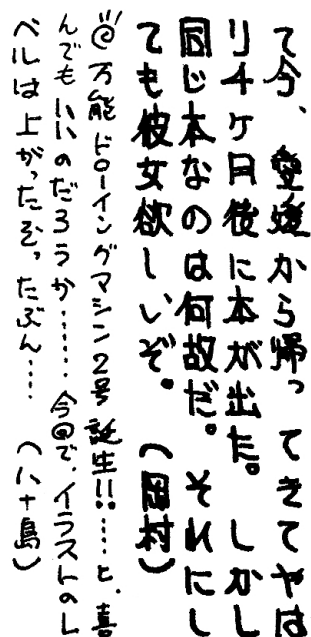 て今、愛媛から帰ってきてやは
り4ケ月後に本が出た。しかし
同じ本なのは何故だ。それにし
ても彼女欲しいぞ。（岡村）
◎万能ドローイングマシン2号誕生!!……と、喜
んでもいいのだろうか……今回で、イラストのレ
ベルは上がったぞっ、たぶん……（八十島）